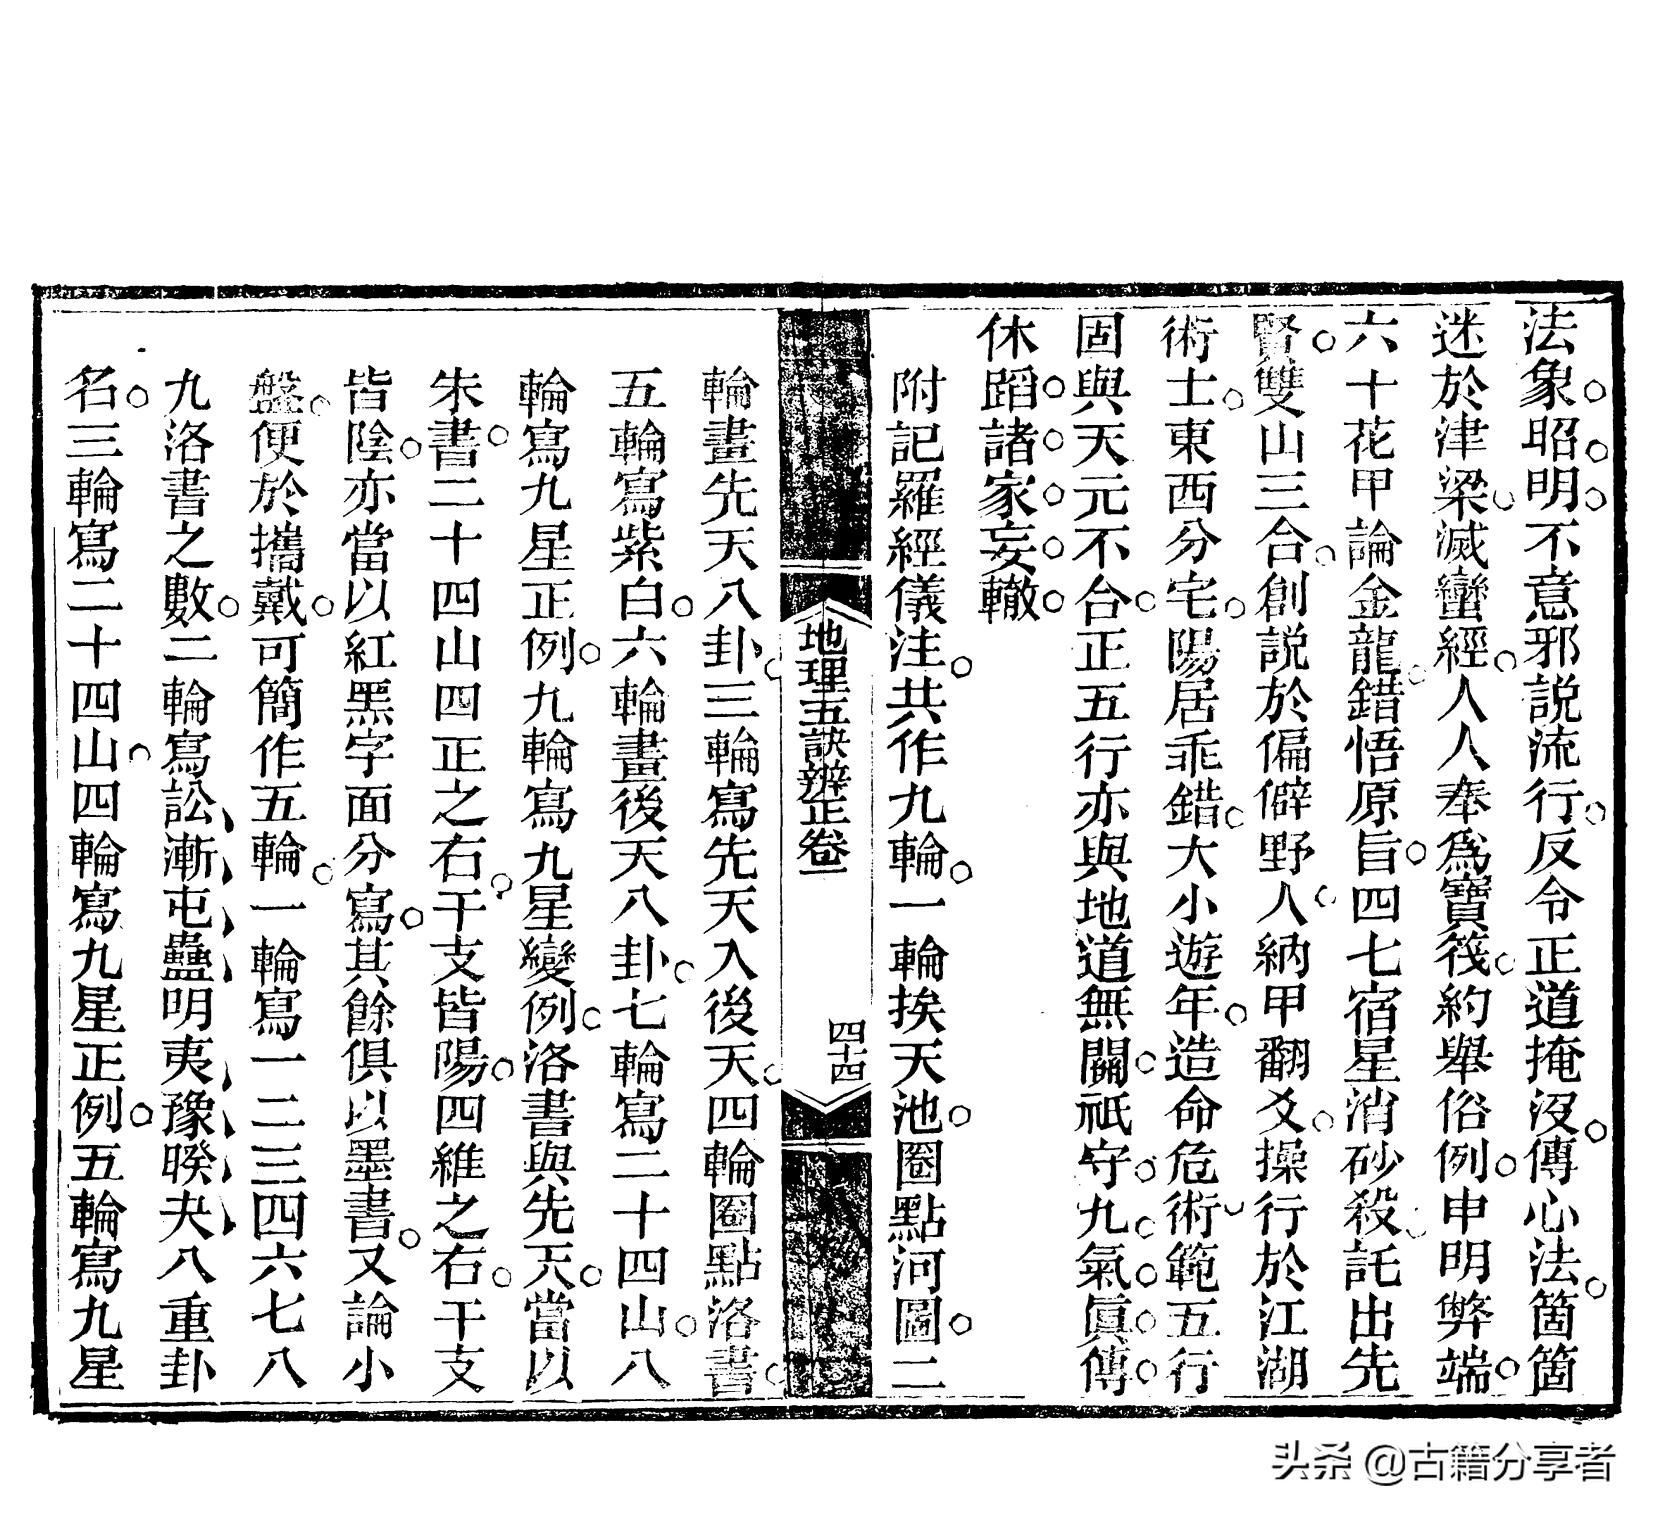 法象昭明不意邪説流行反令正道掩沒傳心法箇箇
迷於津梁滅蠻經人人奉爲寶筏約舉俗例申明弊端
六十花甲論金龍錯悟原旨四七宿星消砂殺託出先
賢雙山三合創説於偏僻野人納甲翻爻操行於江湖
術士東西分宅陽居乖錯大小遊年造命危術範五行
固與天元不合正五行亦與地道無關祇守九氣眞傳
休蹈諸家妄轍
附記羅經儀注共作九輪一輪挨天池圈點河圖二
地理五訣辨正卷一
四十四
輪畫先天八卦三輪寫先天入後天四輪圈點洛書
五輪寫紫白六輪畫後天八卦七輪寫二十四山八
輪寫九星正例九輪寫九星變例洛書與先天當以
朱書二十四山四正之右干支皆陽四維之右干支
皆陰亦當以紅黑字面分寫其餘俱以墨書又論小
盤便於攜戴可簡作五輪一輪寫一二三四六七八
九洛書之數二輪寫訟漸屯蠱明夷豫睽夬八重卦
名三輪寫二十四山四輪寫九星正例五輪寫九星
头条 @古籍分享者